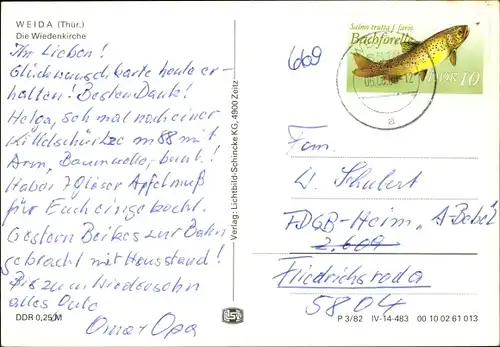 WEIDA (Thür.)
Die Wiedenkirche
Ihr Lieben!
Glückwunschkarte heute er-
halten! Besten Dank!
Helga, seh mal nach einer
Kittelschürze m 88 mit
Arm, Baumwolle, bunt!
Habe 7 Gläser Apfelmuß
für Euch eingekocht.
Gestern Beikes zur Bahn
gebracht mit Hausstand!
Bis zum Wiedersehn
alles Gute
Oma + Opa
DDR 0,25 M
Verlag: Lichtbild-Schincke KG, 4900 Zeitz
669
Salmo trutta f. fario
Bachforelle
DDR 10
a
Fam.
W. Schubert
FDGB-Heim, "A-Bebel"
2.609
Friedrichsroda
5804
P 3/82 IV-14-483 00 10 02 61 013